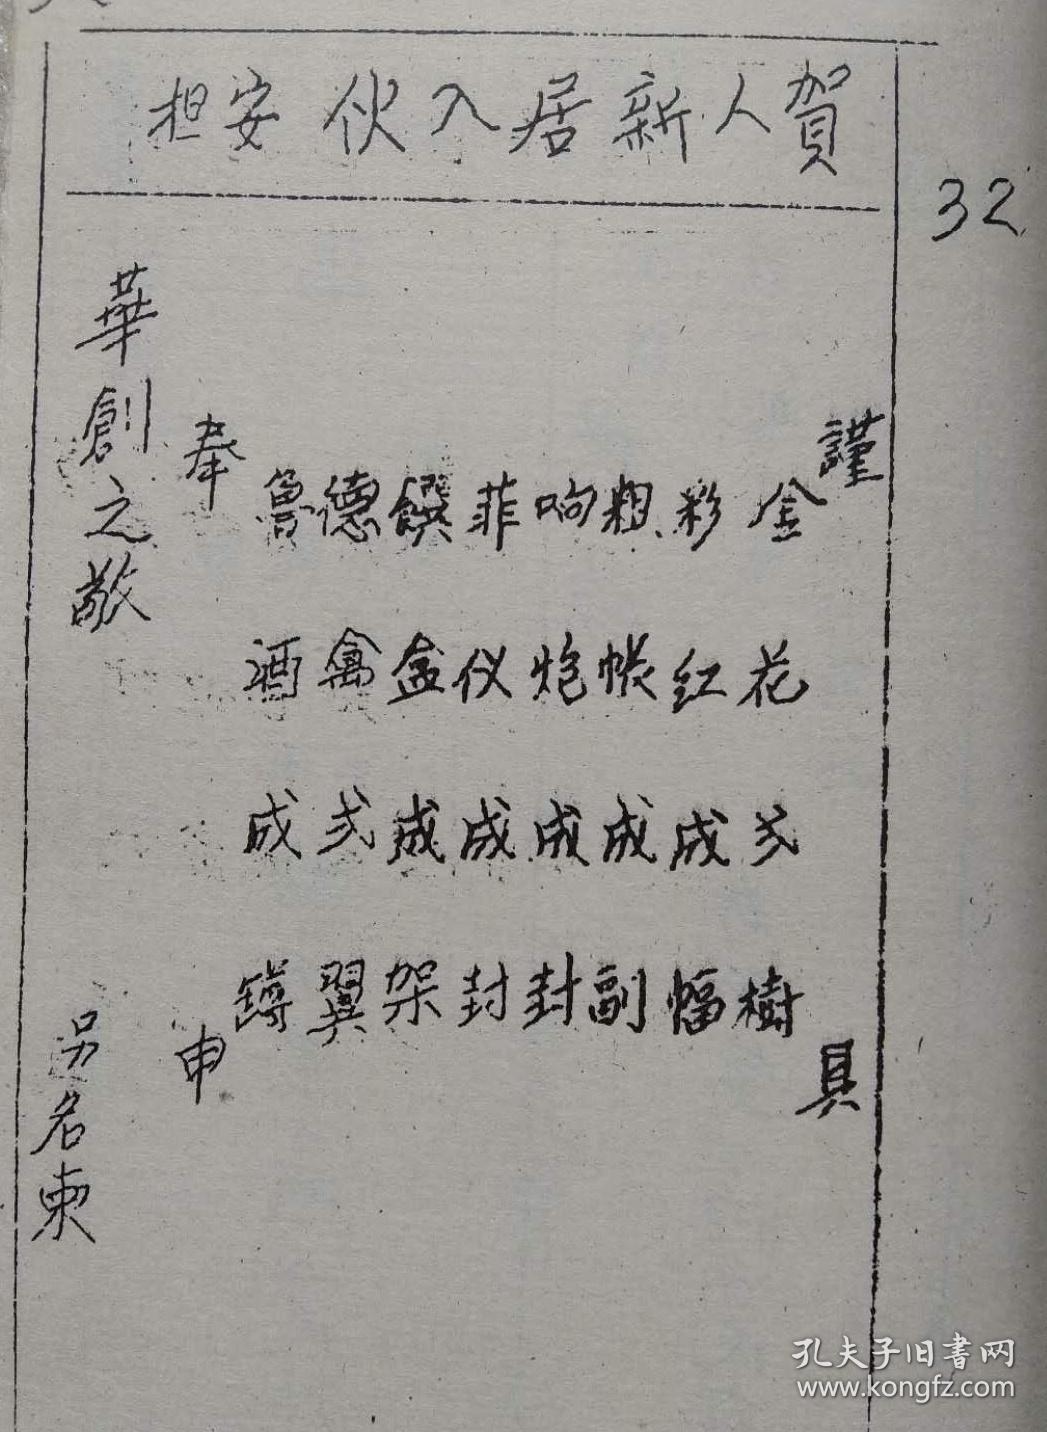 賀人新居入伙安担
32
謹具
金花弍樹
彩红成幅
粗帐成副
响炮成封
菲仪成封
饌盒成架
德禽弍翼
魯酒成罇
奉申
華創之敬
另名柬
孔夫子旧書网
www.kongfz.com